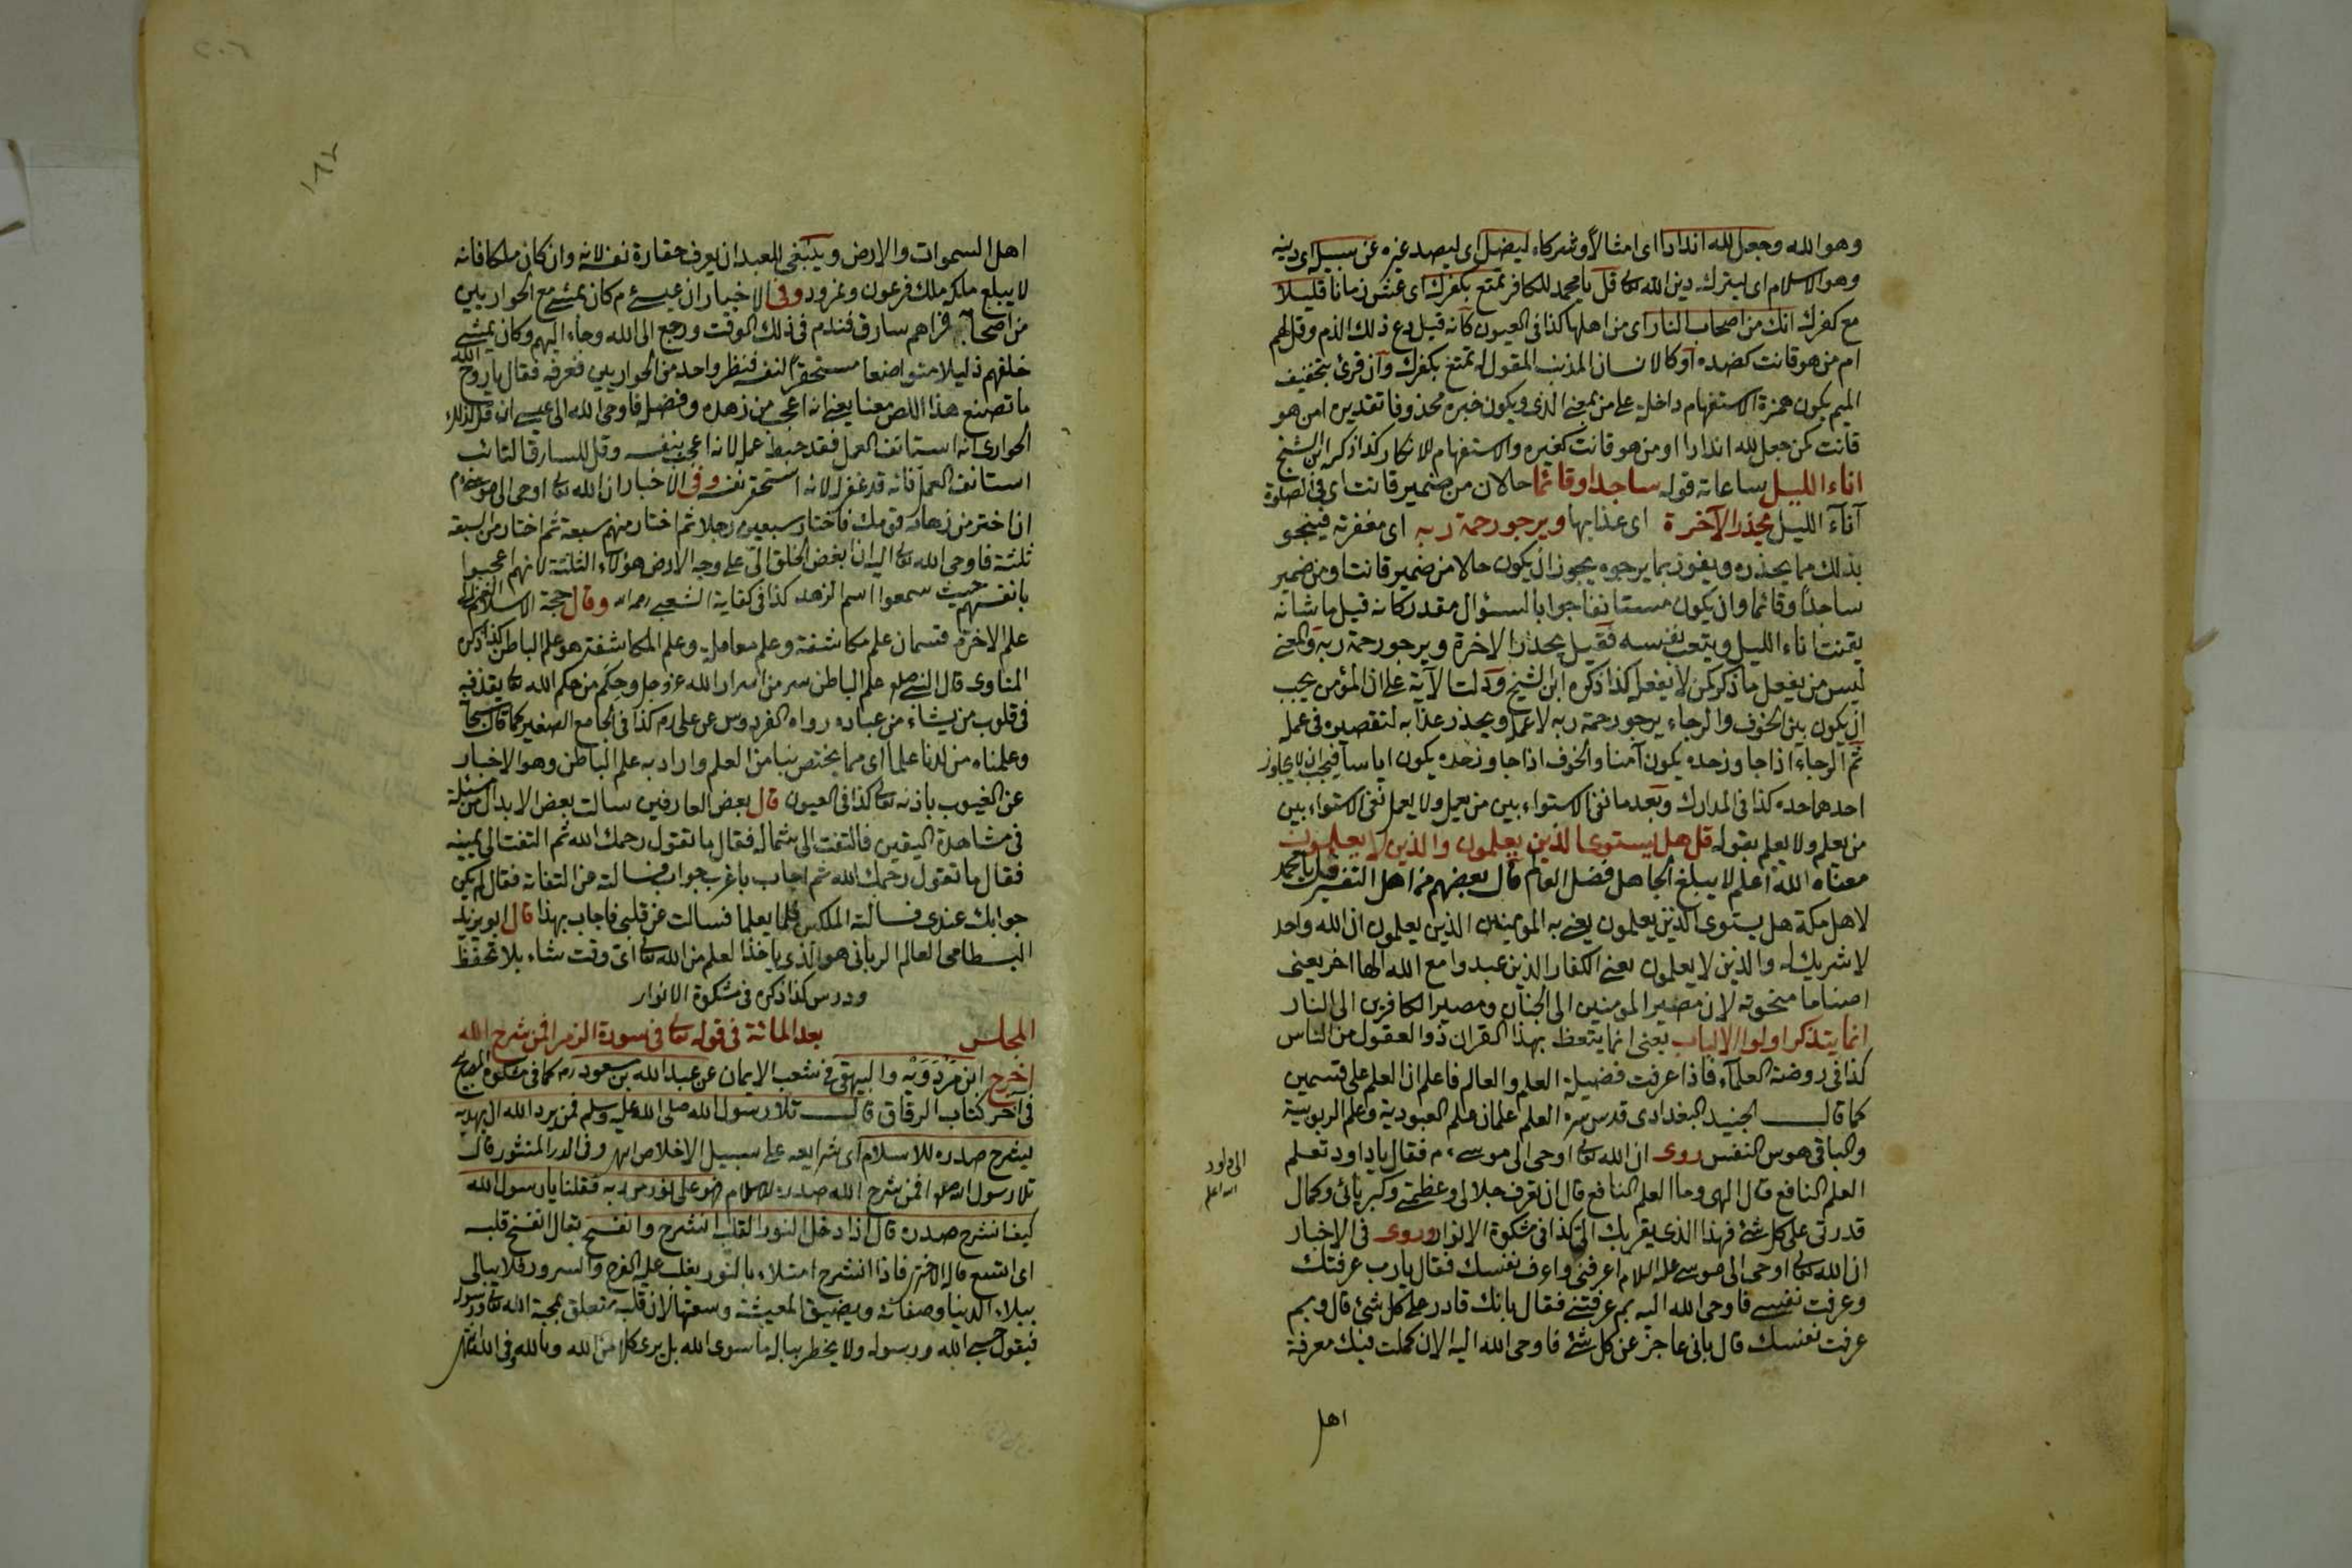 وهو الله وجعل لله اندادا اى امثالا وشركاء ليضل اى ليصد غيره عن سبيل اى دينه
وهو الاسلام اى ليترك دين الله تعالى قل يا محمد للكافر تمتع بكفرك اى عش زمانا قليلا
مع كفرك انك من اصحاب النار اى من اهلها كذا فى العيون كانه قيل دع ذلك الذم وقل لهم
ام من هو قانت كضده او كالانسان المذنب المقول له تمتع بكفرك وان قرئ بتخفيف
الميم يكون همزة الاستفهام داخلة على من بمعنى الذى ويكون خبره محذوفا تقديره امن هو
قانت كمن جعل لله اندادا او من هو قانت كغيره والاستفهام للانكار كذا ذكر ابن الشيخ
اناء الليل ساعاته قوله ساجدا وقائما حالان من ضمير قانت اى فى الصلوة
آناء الليل يحذر الآخرة اى عذابها ويرجو رحمة ربه اى مغفرته فينجو
بذلك مما يحذره ويفوز بما يرجوه يجوز ان يكون حالا من ضمير قانت او من ضمير
ساجدا وقائما وان يكون مستأنفا جوابا لسؤال مقدر كانه قيل ما شانه
يقنت اناء الليل ويتعب نفسه فقيل يحذر الاخرة ويرجو رحمة ربه والمعنى
ليس من يفعل ما ذكر كمن لا يفعل كذا ذكره ابن الشيخ ودلت الآية على ان المؤمن يجب
ان يكون بين الخوف والرجاء يرجو رحمة ربه لا عمله ويحذر عذابه لتقصيره فى عمله
ثم الرجاء اذا جاوز حده يكون آمنا والخوف اذا جاوز حده يكون اياسا فيجب ان لا يجاوز
احدهما حده كذا فى المدارك وبعد ما نفى الاستواء بين من يعمل ولا يعمل نفى الاستواء بين
من يعلم ولا يعلم بقوله قل هل يستوى الذين يعلمون والذين لا يعلمون
معناه الله اعلم لا يبلغ الجاهل فضل العالم قال بعضهم من اهل التفسير قل يا محمد
لاهل مكة هل يستوى الذين يعلمون يعنى به المومنين الذين يعلمون ان الله واحد
لا شريك له والذين لا يعلمون يعنى الكفار الذين عبدوا مع الله الها اخر يعنى
اصناما منحوتة لان مصير المومنين الى الجنان ومصير الكافرين الى النار
انما يتذكر اولوا الالباب يعنى انما يتعظ بهذا القران ذوا العقول من الناس
كذا فى روضة العلماء فاذا عرفت فضيلة العلم والعالم فاعلم ان العلم على قسمين
كما قال الجنيد البغدادى قدس سره العلم علمان علم العبودية وعلم الربوبية
والباقى هوس النفس روى ان الله تعالى اوحى الى موسى ء م فقال يا داود تعلم
الى داود
العلم النافع قال الهى وما العلم النافع قال ان تعرف جلالى وعظمتى وكبريائى وكمال
قدرتى على كل شئ فهذا الذى يقربك الى كذا فى مشكوة الانوار وروى فى الاخبار
ان الله تعالى اوحى الى موسى عليه السلام اعرفنى واعرف نفسك فقال يا رب عرفتك
وعرفت نفسى فاوحى الله اليه بم عرفتنى فقال بانك قادر على كل شئ قال وبم
عرفت نفسك قال بانى عاجز عن كل شئ فاوحى الله اليه الان كملت فيك معرفة
اهل
اهل السموات والارض وينبغى للعبد ان يعرف حقارة نفسه لانه وان كان ملكا فانه
لا يبلغ ملكه ملك فرعون ونمرود وفى الاخبار ان عيسى ء م كان يمشى مع الحواريين
من اصحابه فراهم سارق فندم فى ذلك الوقت ورجع الى الله وجاء اليهم وكان يمشى
خلفهم ذليلا متواضعا مستحقرا لنفسه فنظر واحد من الحواريين فعرفه فقال يا روح الله
ما تصنع هذا اللص معنا يعنى انه اعجب من زهده وفضله فاوحى الله الى عيسى ان قل لذلك
الحوارى انه استانف العمل فقد حبط عمله لانه اعجب بنفسه وقل للسارق التائب
استانف العمل فانه قد غفر له لانه استحقر نفسه وفى الاخبار ان الله تعالى اوحى الى موسى
ان اختر من زهاد قومك فاختار سبعين رجلا ثم اختار منهم سبعة ثم اختار من السبعة
ثلثة فاوحى الله تعالى اليه ان ابغض الخلق الى على وجه الارض هؤلاء الثلثة لانهم اعجبوا
بانفسهم حيث سمعوا اسم الزهد كذا فى كفاية الشعبى رحمه الله وقال حجة الاسلام الغزالى
علم الاخرة قسمان علم مكاشفة وعلم معاملة وعلم المكاشفة هو علم الباطن كذا ذكره
المناوى قال النبى صلعم علم الباطن سر من اسرار الله عز وجل وحكم من حكم الله تعالى يقذفه
فى قلوب من يشاء من عباده رواه الفردوس عن على رم كذا فى الجامع الصغير كما قال سبحانه
وعلمناه من لدنا علما اى مما يختص بنا من العلم واراد به علم الباطن وهو الاخبار
عن الغيوب باذنه تعالى كذا فى العيون قال بعض العارفين سالت بعض الابدال من مسئلة
فى مشاهدة اليقين فالتفت الى شماله فقال ما تقول رحمك الله ثم التفت الى يمينه
فقال ما تقول رحمك الله ثم اجاب باغرب جواب فسالته عن التفاته فقال لم يكن
جوابك عندى فسالت الملكين فلما يعلما فسالت عن قلبى فاجاب بهذا قال ابو يزيد
البسطامى العالم الربانى هو الذى ياخذ العلم من الله تعالى اى وقت شاء بلا تحفظ
ودرس كذا ذكره فى مشكوة الانوار
المجلس بعد المائة فى قوله تعالى فى سورة الزمر افمن شرح الله
اخرج ابن مردويه والبيهقى فى شعب الايمان عن عبد الله بن مسعود رم كما فى مشكوة المصابيح
فى آخر كتاب الرقاق قال تلا رسول الله صلى الله عليه وسلم فمن يرد الله ان يهديه
يشرح صدره للاسلام اى شرايعه على سبيل الاخلاص انتهى وفى الدر المنثور قال
تلا رسول الله صلعم افمن شرح الله صدره للاسلام فهو على نور من ربه فقلنا يا رسول الله
كيف انشرح صدره قال اذا دخل النور القلب انشرح وانفسح يقال انفسح قلبه
اى اتسع قاله الاخترى فاذا انشرح امتلاء بالنور يغلب عليه الفرح والسرور فلا يبالى
ببلاء الدنيا وصفائه ويضيق المعيشة وسعتها لان قلبه متعلق بمحبة الله تعالى ورسوله
فيقول حسبى الله ورسوله ولا يخطر بباله ما سوى الله بل يرى كلا من الله وبالله وفى الله